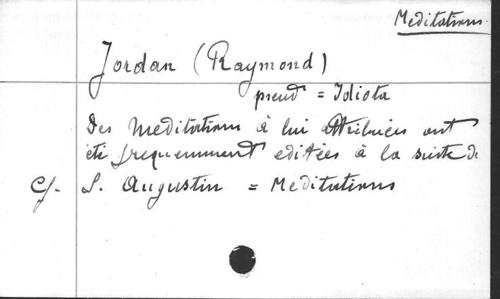 Meditations
Jordan (Raymond)
pseud = Idiota
Des Meditations à lui attribuées ont
été frequemment editées à la suite de
Cf. S. Augustin = Meditations